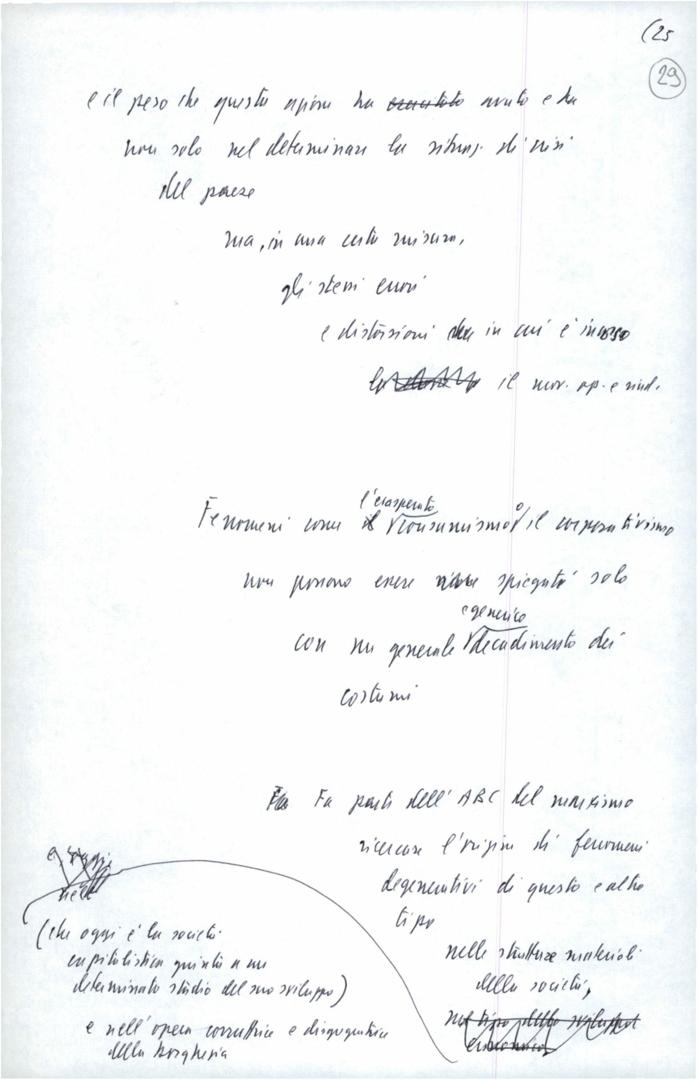 (25
29
e il peso che questa azione ha avuto e ha
non solo nel determinare la situaz. di crisi
del paese
ma, in una certa misura,
gli stessi errori
e distorsioni in cui è incorso
il mov. op. e sind.
l'esasperato
Fenomeni come consumismo o il corporativismo
non possono essere spiegati solo
e generico
con un generale decadimento dei
costumi
Fa parte dell'ABC del marxismo
ricercare l'origine di fenomeni
degenerativi di questo e altro
tipo
nelle strutture materiali
della società,
nel tipo dello sviluppo
economico
e oggi,
nell
(che oggi è la società
capitalistica giunta a un
determinato stadio del suo sviluppo)
e nell'opera corruttrice e disgregatrice
della borghesia